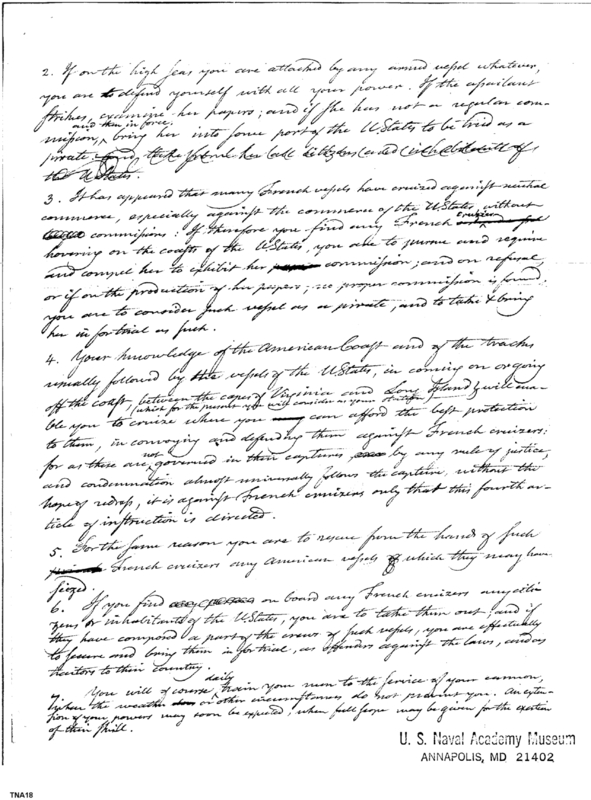 2. If on the high seas you are attacked by any armed vessel whatever,
you are to defend yourself with all your power. If the assailant
strikes, examine her papers; and if she has not a regular com-
and then in force,
mission, bring her into some port of the U States to be tried as a
pirate
the U States.
3. It has appeared that many French vessels have cruized against neutral
commerce, especially against the commerce of the U. States, without
commissions: If therefore you find any French cruizer
hovering on the coasts of the U States, you are to pursue and require
and compel her to exhibit her commission; and on refusal,
or if on the production of her papers, no proper commission is found
you are to consider such vessel as a pirate, and to take & bring
her in for trial as such.
4. Your knowledge of the American Coast and of the tracks
usually followed by the vessels of the U. States, in coming on or going
off the coast, between the capes of Virginia and Long Island, will ena-
(which for the present you will consider as your station)
ble you to cruize where you can afford the best protection
to them, in convoying and defending them against French cruizers:
not
for as these are governed in their captures by any rule of justice,
and condemnation almost universally follows the capture, without the
hope of redress, it is against French cruizers only that this fourth ar-
ticle of instruction is directed.
5. For the same reason you are to rescue from the hands of such
French cruizers any American vessels of which they may have
seized.
6. If you find on board any French cruizers any citi-
zens or inhabitants of the U. States, you are to take them out; and if
they have composed a part of the crews of such vessels, you are effectually
to secure and bring them in for trial, as offenders against the laws, and as
traitors to their country.
daily
7. You will of course train your men to the service of your cannon,
when the weather or other circumstances do not prevent you. An exten-
sion of your powers may soon be expected, when full scope may be given for the exertion
of their skill.
U. S. Naval Academy Museum
ANNAPOLIS, MD 21402
TNA18